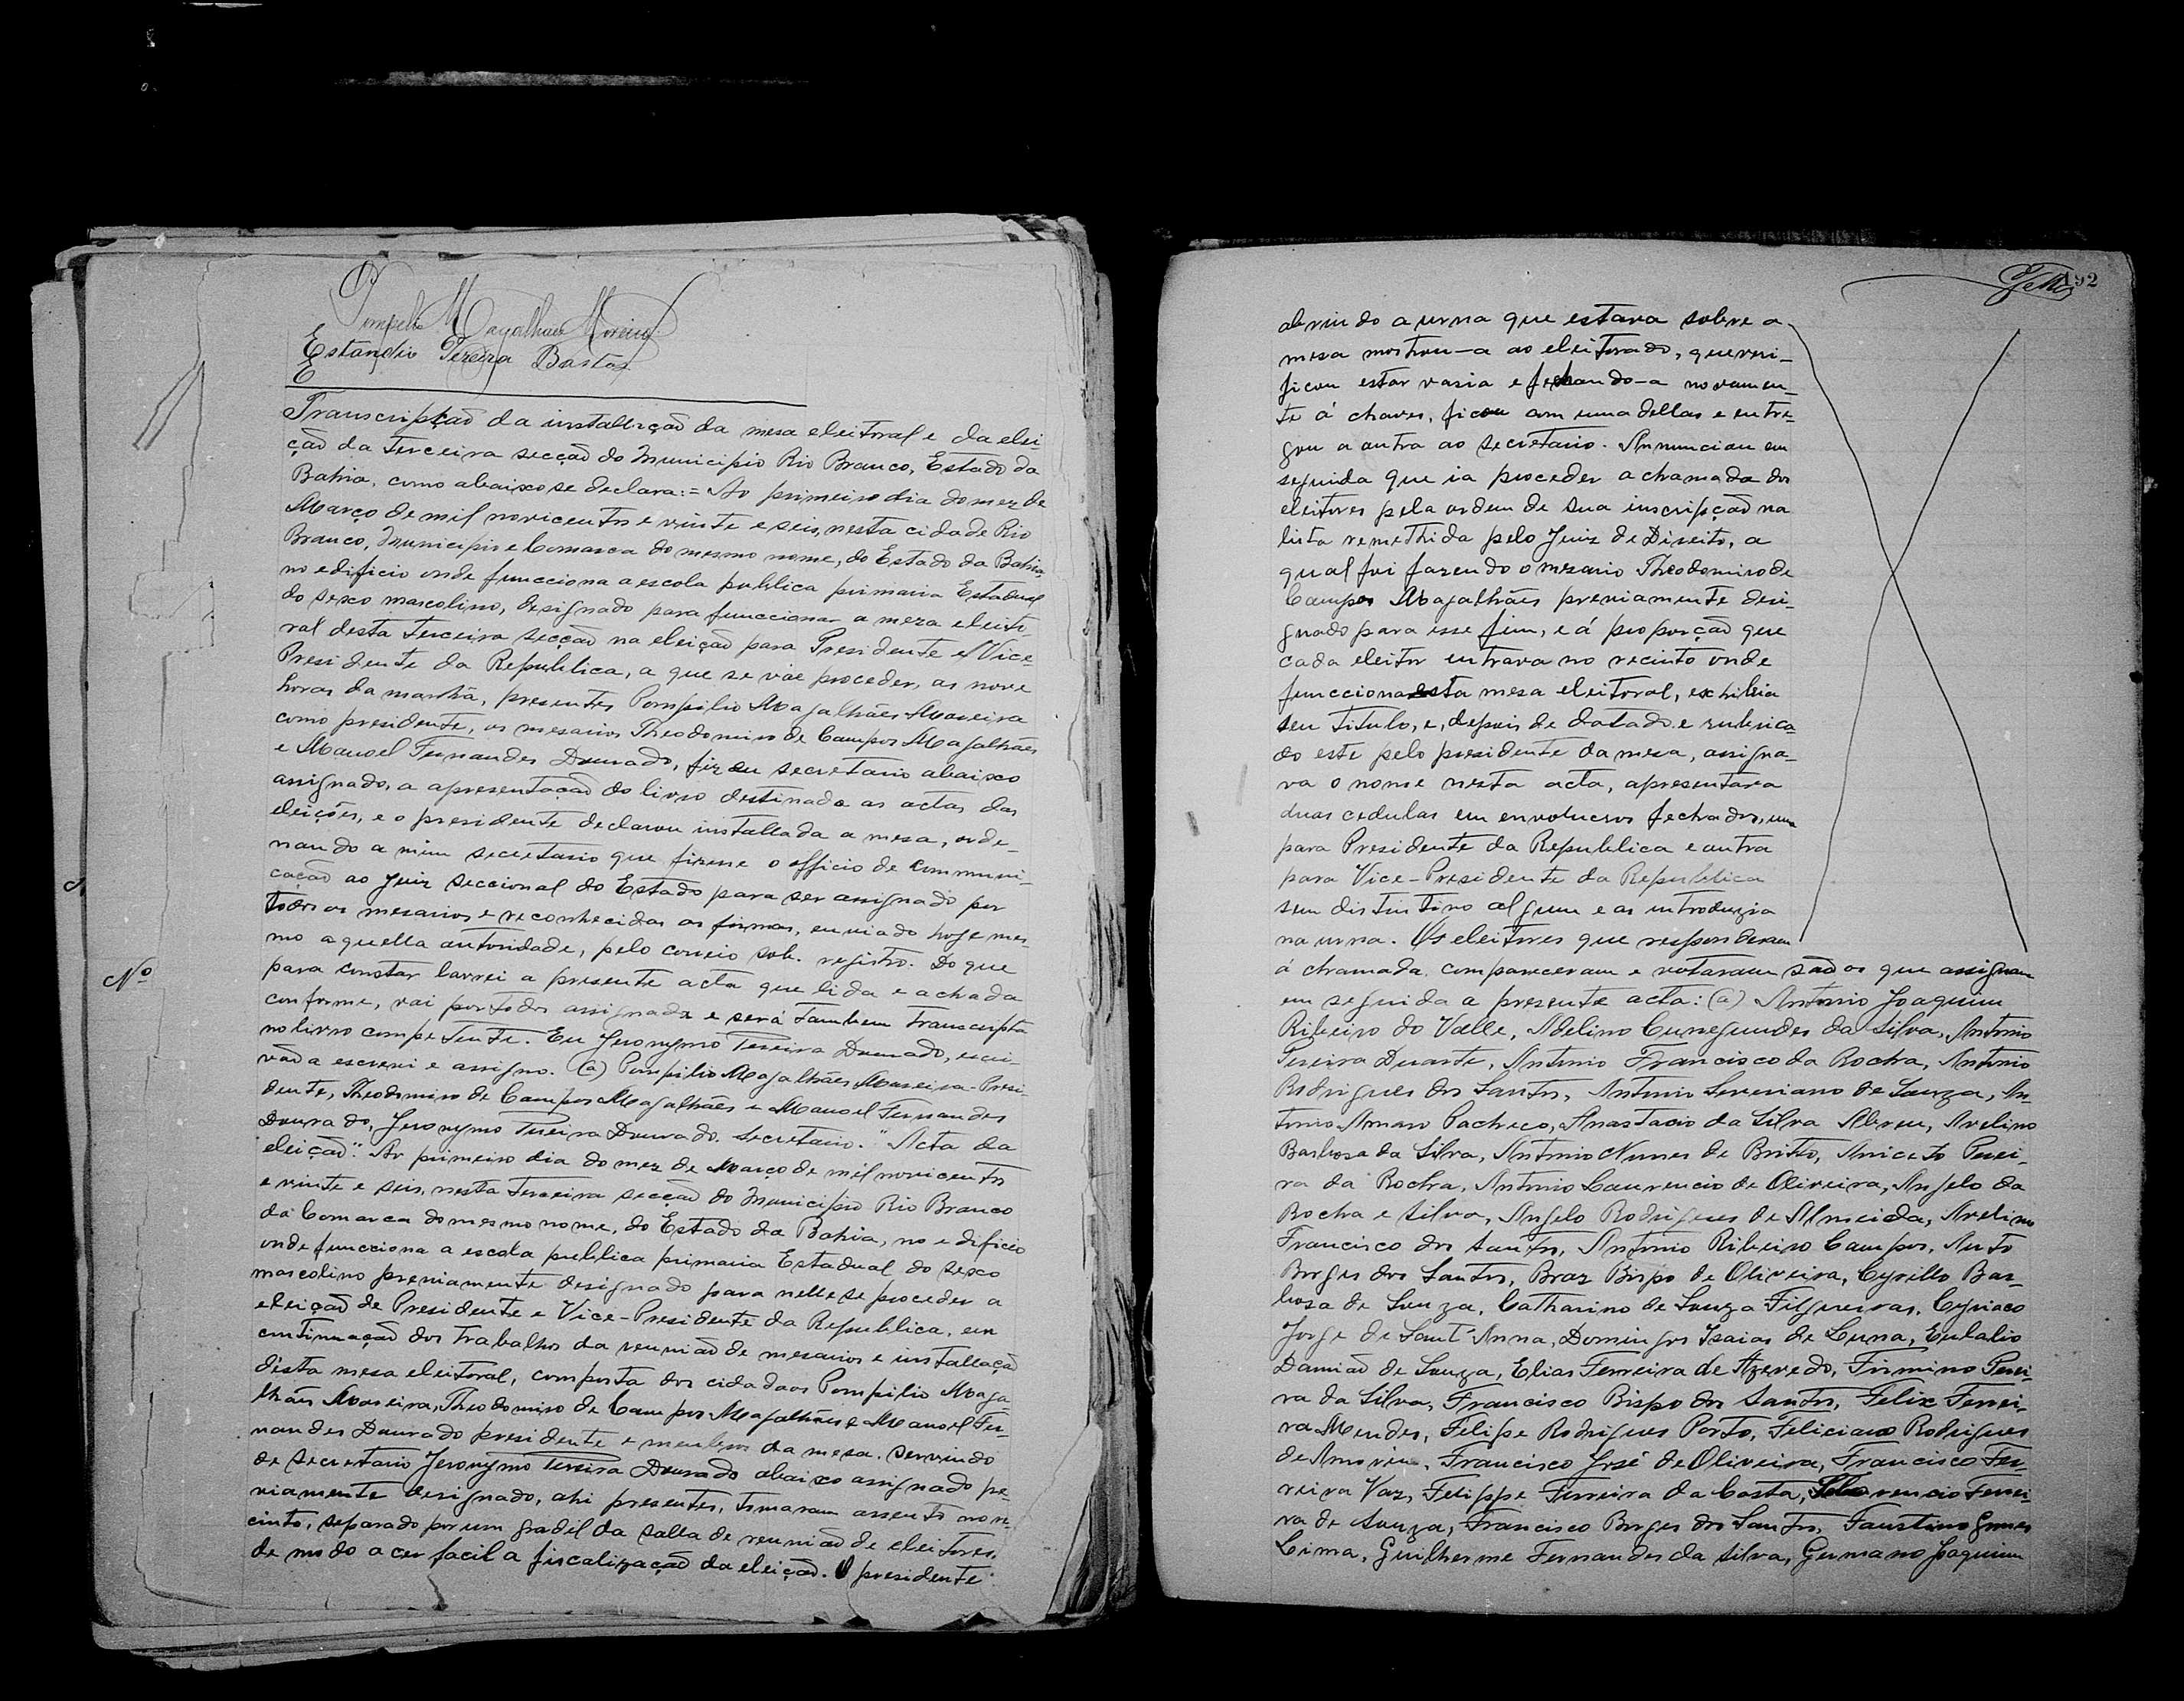 Pompilio Magalhães Moreira
Estandio Pereira Bastos
Transcripção da installação da mesa eleitoral e da elei-
ção da Terceira secção do Municipio Rio Branco, Estado da
Bahia, como abaixo se declara:= Ao primeiro dia do mez de
Março de mil novicentos e vinte e seis, nesta cidade Rio
Branco, Municipio e Comarca do mesmo nome, do Estado da Bahia,
no edificio onde funcciona a escola publica primaria Estadual
do sexo mascolino, designado para funccionar a meza eleito-
ral desta Terceira secção na eleição para Presidente e Vice-
Presidente da Republica, a que se vae proceder, as nove
horas da manhã, presentes Pompilio Magalhães Moreira
como presidente, os mesarios Theodomiro de Campos Magalhães
e Manoel Fernandes Dourado, fiz eu secretario abaixo
assignado, a apresentação do livro destinado as actas das
eleições, e o presidente declarou installada a mesa, orde-
nando a mim secretario que fizesse o officio de communi-
cação ao Juiz Seccional do Estado para ser assignado por
todos os mesarios e reconhecidas as firmas, enviado hoje mes-
mo aquella autoridade, pelo correio sob. registro. Do que
para constar lavrei a presente acta que lida e achada
conforme, vai por todos assignada e será tambem transcripta
no livro competente. Eu Jeronymo Pereira Dourado, escri-
vão a escrevi e assigno. (a) Pompilio Magalhães Moreira-Presi-
dente, Theodomiro de Campos Magalhães e Manoel Fernandes
Dourado, Jeronymo Pereira Dourado. Secretario." Acta da
eleição": Ao primeiro dia do mez de Março de mil novicentos
e vinte e seis, nesta Terceira secção do Municipio Rio Branco
da Comarca do mesmo nome, do Estado da Bahia, no edificio
onde funcciona a escola publica primaria Estadual do sexo
mascolino previamente designado para nelle se proceder a
eleição de Presidente e Vice-Presidente da Republica, em
continuação dos trabalhos da reunião de mesarios e installação
désta mesa eleitoral, composta dos cidadaos Pompilio Maga-
lhães Moreira, Theodomiro de Campos Magalhães e Manoel Fer-
nandes Dourado presidente e membros da mesa. servindo
de secretario Jeronymo Pereira Dourado abaixo assignado pre-
viamente designado, ahi presentes, tomaram assento no re-
cinto, separado por um gradil da salla de reunião de eleitores,
de modo a cer facil a fiscalização da eleição. O presidente
192
abrindo a urna que estava sobre a
mesa mostrou-a ao eleitorado, que veri-
ficou estar vasia e fechando-a novamen-
te á chaves, ficou com uma dellas e entre-
gou a outra ao secretario. Annunciou em
seguida que ia proceder a chamada dos
eleitores pela ordem de sua inscripção na
lista remethida pelo Juiz de Direito, a
qual foi fazendo o mesario Theodomiro de
Campos Magalhães previamente desi-
gnado para esse fim, e á proporção que
cada eleitor entrava no recinto onde
funcciona esta mesa eleitoral, exhibia
seu titulo, e, depois de datado e rubrica-
do este pelo presidente da mesa, assigna-
va o nome nesta acta, apresentava
duas cedulas em envolucros fechados, uma
para Presidente da Republica e outra
para Vice-Presidente da Republica
sem distintivo algum e as introduzia
na urna. Os eleitores que responderam
á chamada, compareceram e votaram são os que assignam
em seguida a presente acta: (a) Antonio Joaquim
Ribeiro do Valle, Adelino Cunegundes da Silva, Antonio
Pereira Duarte, Antonio Francisco da Rocha, Antonio
Rodrigues dos Santos, Antonio Severiano de Souza, An-
tonio Amaro Pacheco, Anastacio da Silva Abreu, Avelino
Barbosa da Silva, Antonio Nunes de Britto, Aniceto Perei-
ra da Rocha, Antonio Laurencio de Oliveira, Angelo da
Rocha e Silva, Angelo Rodrigues de Almeida, Avelino
Francisco dos Santos, Antonio Ribeiro Campos, Auto
Borges dos Santos, Braz Bispo de Oliveira, Cyrillo Bar-
bosa de Souza, Catharino de Souza Filgueiras, Cyriaco
Jorge de Sant'Anna, Domingos Isaias de Luna, Eulalio
Damião de Souza, Elias Ferreira de Azevedo, Firmino Perei-
ra da Silva, Francisco Bispo dos Santos, Felix Ferrei-
ra Mendes, Felipe Rodrigues Porto, Feliciano Rodrigues
de Amorim, Francisco José de Oliveira, Francisco Fer-
reira Vaz, Felippe Ferreira da Costa, Florencio Ferrei-
ra de Souza, Francisco Borges dos Santos, Faustino Gomes
Lima, Guilherme Fernandes da Silva, Germano Joaquim
Nº